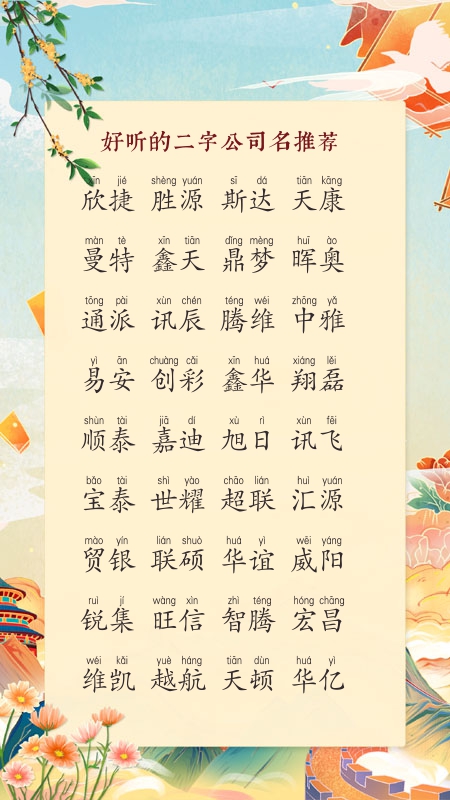 好听的二字公司名推荐
xīn jié shèng yuán sī dá tiān kāng
欣捷 胜源 斯达 天康
màn tè xīn tiān dǐng mèng huī ào
曼特 鑫天 鼎梦 晖奥
tōng pài xùn chén téng wéi zhōng yǎ
通派 讯辰 腾维 中雅
yì ān chuàng cǎi xīn huá xiáng lěi
易安 创彩 鑫华 翔磊
shùn tài jiā dí xù rì xùn fēi
顺泰 嘉迪 旭日 讯飞
bǎo tài shì yào chāo lián huì yuán
宝泰 世耀 超联 汇源
mào yín lián shuò huá yì wēi yáng
贸银 联硕 华谊 威阳
ruì jí wàng xìn zhì téng hóng chāng
锐集 旺信 智腾 宏昌
wéi kǎi yuè háng tiān dùn huá yì
维凯 越航 天顿 华亿